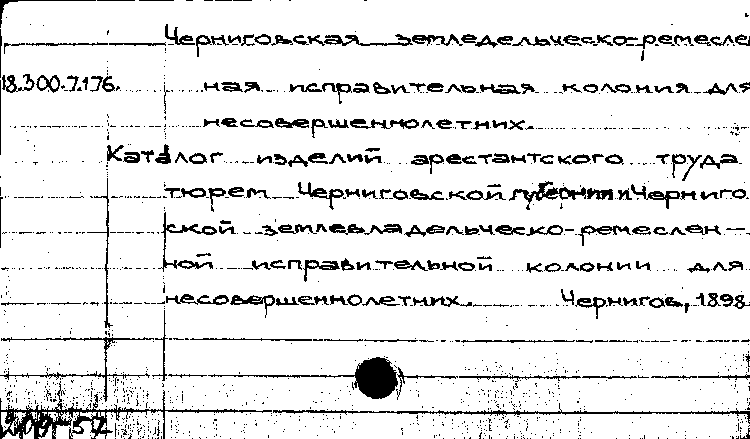 Черниговская земледельческо-ремеслен
18.300.7.176. ная исправительная колония для
несовершеннолетних.
Каталог изделий арестантского труда
тюрем Черниговской губернии и Черниго
ской землевладельческо-ремеслен-
ной исправительной колонии для
несовершеннолетних. Чернигов, 1898
209-57